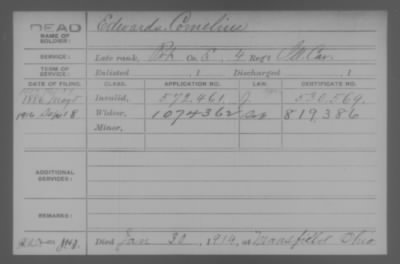 DEAD
NAME OF SOLDIER:
Edwards Cornelius
SERVICE:
Late rank, Pvt Co. E, 4 Reg't Cav.
TERM OF SERVICE:
Enlisted , 1 Discharged , 1
DATE OF FILING. CLASS. APPLICATION NO. LAW. CERTIFICATE NO.
1886 Invalid, 572,461 530,569
1916 Sep 18 Widow, 1074362 819,386
Minor,
ADDITIONAL SERVICES:
REMARKS:
Died Jan 30, 1914, at Mansfield Ohio